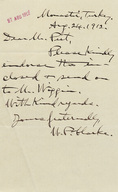 Monastir, Turkey.
Aug. 24, 1912.
Dear Mr. Peet,
Please kindly
endorse the in-
closed & send on
to Mr. Wiggin.
With kind regards.
Yours fraternally
W. P. Clarke.